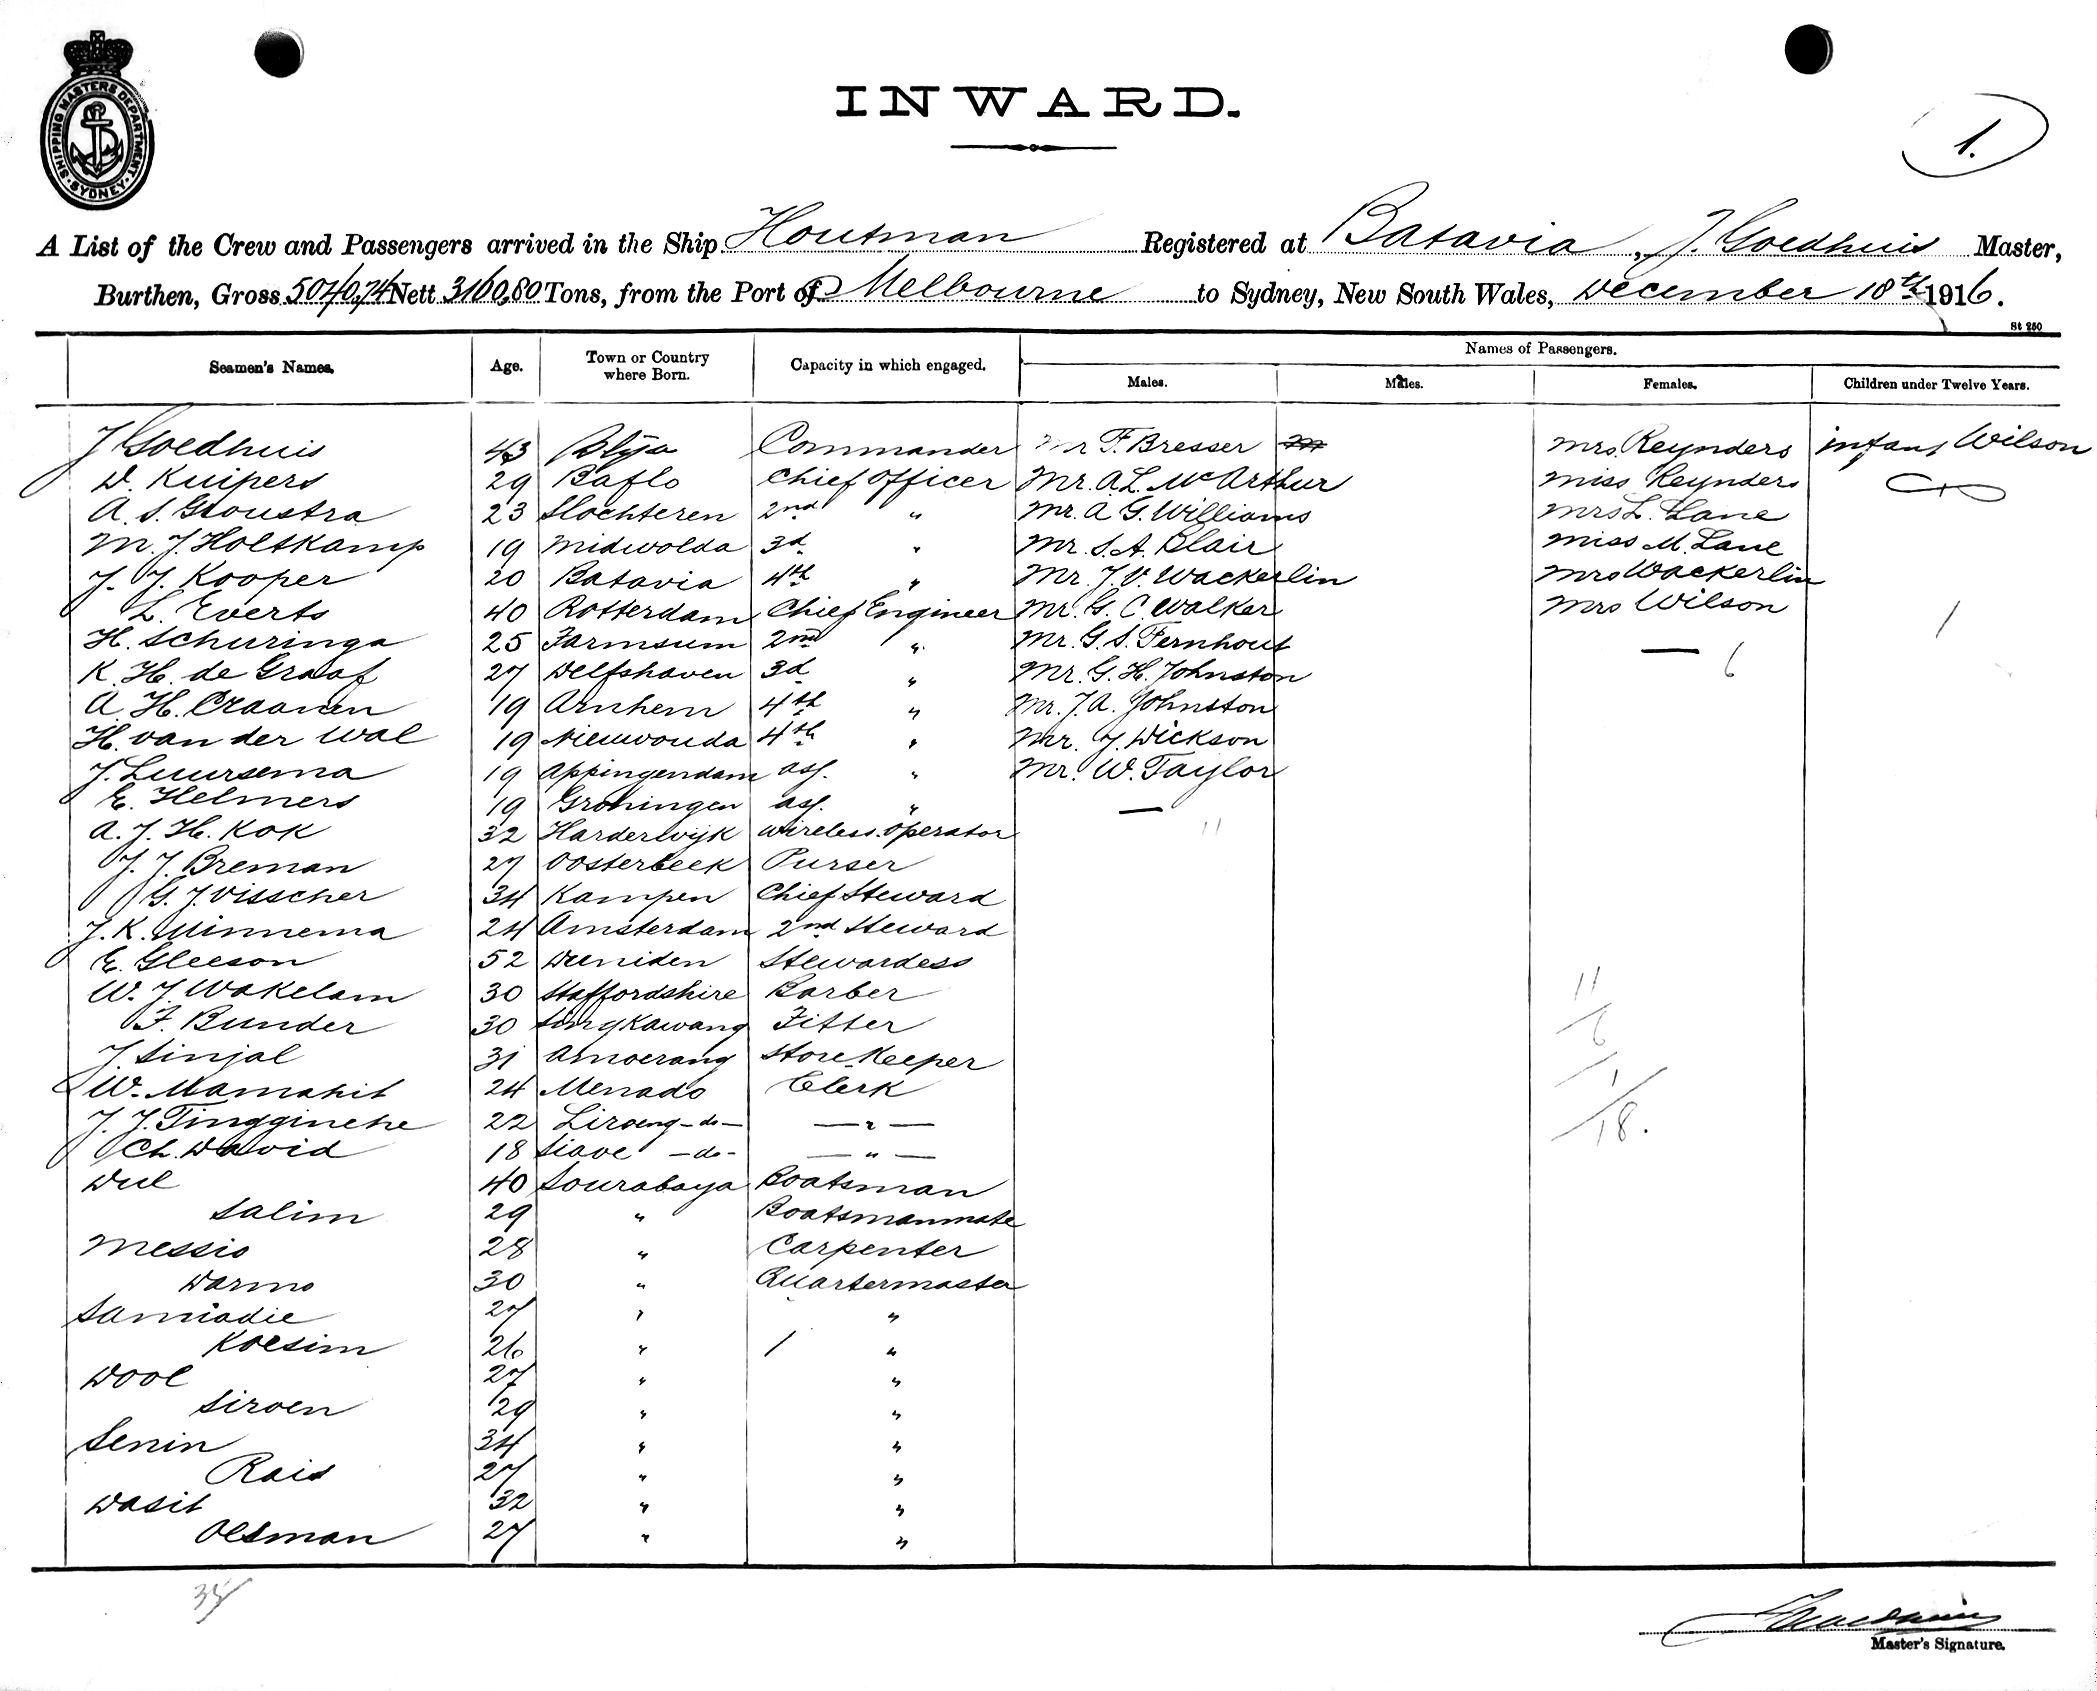 SHIPPING MASTERS DEPARTMENT · SYDNEY ·
INWARD.
1.
A List of the Crew and Passengers arrived in the Ship Houtman Registered at Batavia, J. Goedhuis Master,
Burthen, Gross 5040,74 Nett 3160,80 Tons, from the Port of Melbourne to Sydney, New South Wales, December 18th 1916.
St 250
Seamen's Names. Age. Town or Country where Born. Capacity in which engaged. Names of Passengers.
Males. Males. Females. Children under Twelve Years.
J Goedhuis 43 Commander Mr F. Bresser Mrs. Reynders infant Wilson
D. Kuipers 29 Baflo Chief Officer Mr. A.L. McArthur Miss Reynders
A. S. Gloustra 23 Slochteren 2nd " Mr. A G. Williams Mrs L. Lane
M. J. Holtkamp 19 Midwolda 3d " Mr. S. A. Blair Miss M. Lane
J. J. Kooper 20 Batavia 4th " Mr. J. V. Wackerlin Mrs Wackerlin
L. Everts 40 Rotterdam Chief Engineer Mr. G. C. Walker Mrs Wilson 1
H. Schuringa 25 Farmsum 2nd " Mr. G. S. Fernhout
K. H. de Graaf 27 Delfshaven 3d " Mr. G. H. Johnston 6
A. H. Craanen 19 Arnhem 4th " Mr. J. A. Johnston
H. van der Wal 19 Nieuwouda 4th " Mr. J. Dickson
J. Luursema 19 Appingendam ass. " Mr. W. Taylor
E. Helmers 19 Groningen ass. " —
A. J. H. Kok 32 Harderwijk Wireless. Operator 11
J. J. Breman 27 Oosterbeek Purser
G. J. Visscher 34 Kampen Chief Steward
J. K. Minnema 24 Amsterdam 2nd Steward
E. Gleeson 52 Stewardess
W. J. Wakelam 30 Staffordshire Barber 11
F. Bunder 30 Singkawang Fitter 6
J. Sinjal 31 Amoerang Store Keeper
W. Mamahit 24 Menado Clerk 1
J. J. Tingginehe 22 Liroeng - do - — " — 18.
Ch. David 18 Siave - do - — " —
Wul 40 Sourabaya Boatsman
Salim 29 " Boatsmanmate
Messio 28 " Carpenter
Darmo 30 " Quartermaster
Samiadie 27 " "
Koesim 26 " "
Dool 27 " "
Siroen 29 " "
Senin 34 " "
Rais 27 " "
Wasit 32 " "
Oesman 27 " "
35
Master's Signature.